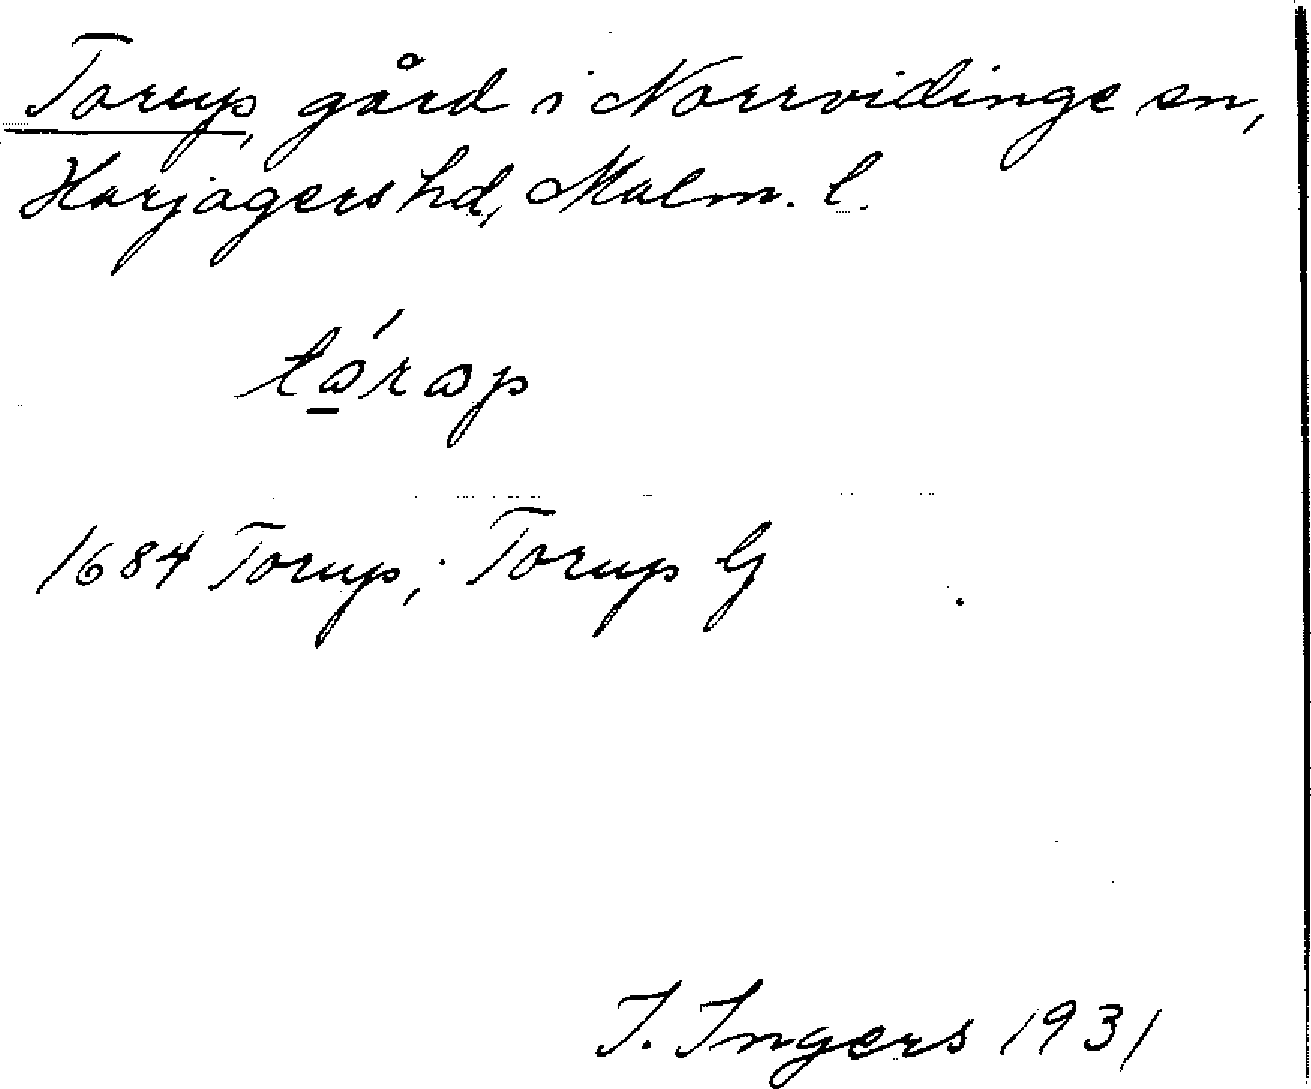 Torup, gård i Norrvidinge sn,
Harjagers hd, Malm. l.
tórop
1684 Torup; Torup G
I. Ingers 1931